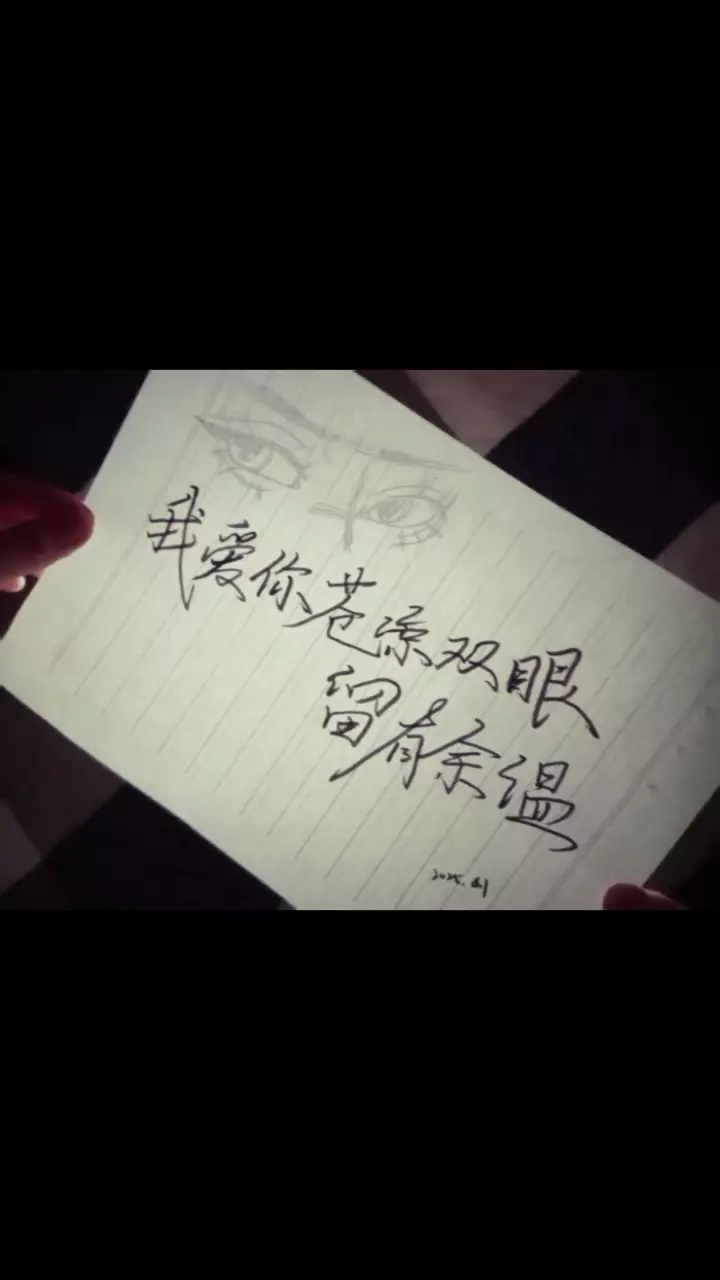 我爱你苍凉双眼
留有余温
2025.6.1